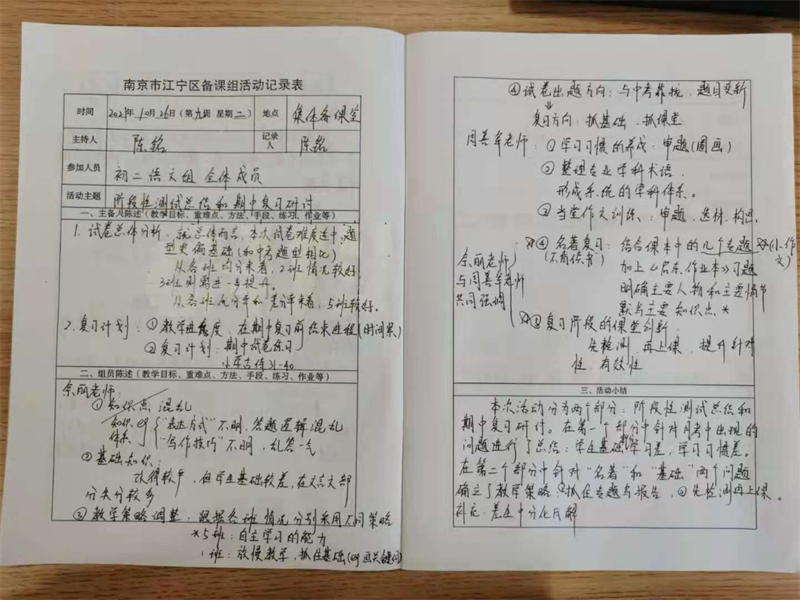 南京市江宁区备课组活动记录表
时间 2021年10月26日(第九周 星期二) 地点 集体备课室
主持人 陈铭 记录人 陈铭
参加人员 初二语文组 全体成员
活动主题 阶段性测试总结和期中复习研讨
一、主备人陈述(教学目标、重难点、方法、手段、练习、作业等)
1. 试卷总体分析:就总体而言,本次试卷难度适中,题
型更偏基础(和中考题型相比)
从各班均分来看,2班情况较好,
3班则需进一步提升。
从各班优分率和差分率来看,5班较好。
2. 复习计划:①教学进度:在期中复习前结束进程
②复习计划:期中试卷练习
31-40
二、组员陈述(教学目标、重难点、方法、手段、练习、作业等)
余丽老师:
①知识点混乱
知识体系 "表达方式"不明,答题逻辑混乱
"写作技巧"不明,乱答一气
②基础知识:
但学生基础较差,在文言文部
分失分较多
③教学策略调整:根据各班情况分别采用不同策略
*5班:自主学习的能力
1班:放慢教学,抓住基础
④试卷出题方向:与中考靠拢,题目变新
复习方向:抓基础、抓课堂
周善军老师:①学习习惯的养成:审题(圈画)
②整理专业学科术语,
形成系统的学科体系。
③当堂作文训练:审题、选材、构思
余丽老师
与周善军老师
共同强调
④名著复习:结合课本中的几个专题(小作文)
加上《启东作业本》习题
明确主要人物和主要情节
默写主要知识点 *
复习阶段的课堂创新
先检测,再上课,提升针对
性、有效性
三、活动小结
本次活动分为两个部分:阶段性测试总结和
期中复习研讨。在第一个部分中针对月考中出现的
问题进行了总结:学生基础学习差,学习习惯差。
在第二个部分中针对"名著"和"基础"两个问题
确立了教学策略:①抓住专题与报告,②先检测再上课。